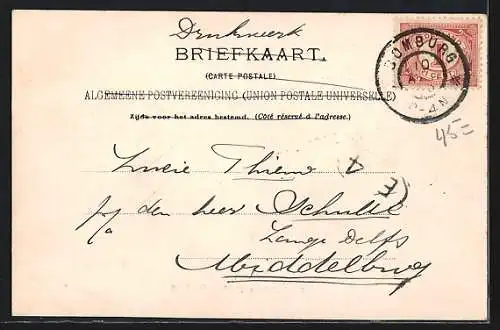 Drukwerk
BRIEFKAART.
(CARTE POSTALE)
ALGEMEENE POSTVEREENIGING (UNION POSTALE UNIVERSELLE)
Zijde voor het adres bestemd. (Côté réservé à l'adresse.)
DOMBURG
10
8-4N
45=
Lucie Thieme
den heer Schulte
Lange Delft
Middelburg